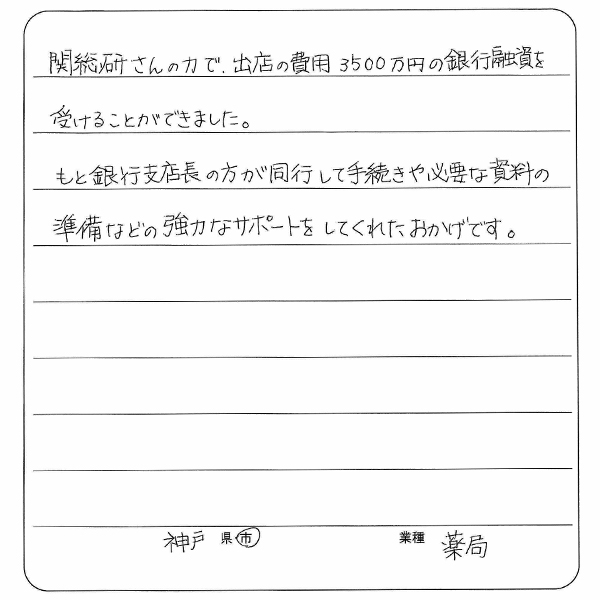 関総研さんの力で、出店の費用3500万円の銀行融資を
受けることができました。
もと銀行支店長の方が同行して手続きや必要な資料の
準備などの強力なサポートをしてくれたおかげです。
神戸 県市 業種 薬局